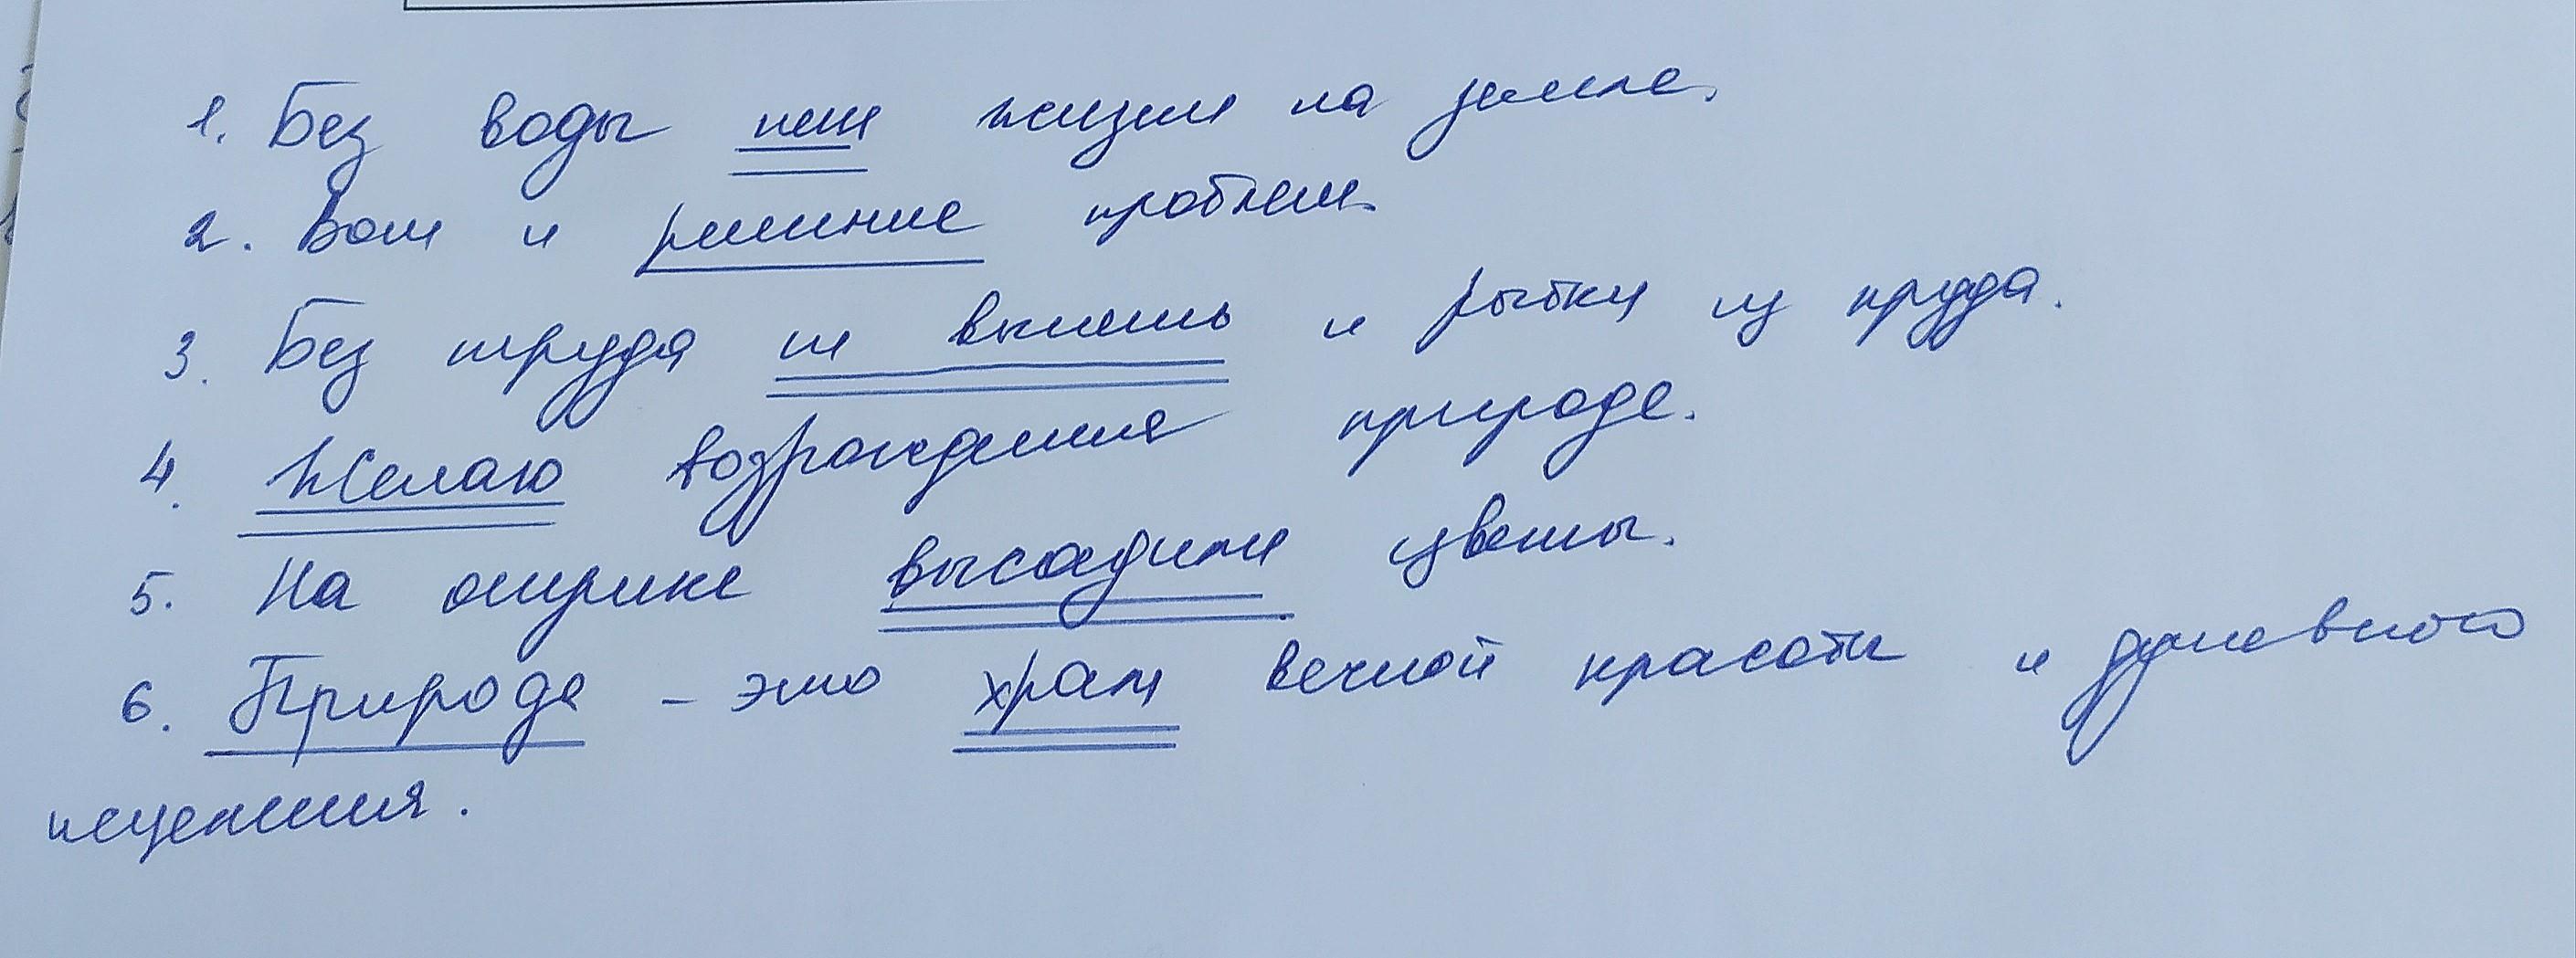 1. Без воды нет жизни на земле.
2. Вот и решение проблем.
3. Без труда не вынешь и рыбки из пруда.
4. Желаю возрождения природе.
5. На опушке высадили цветы.
6. Природа - это храм вечной красоты и душевного
исцеления.